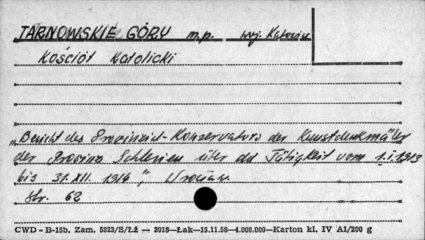 TARNOWSKIE GÓRY m.p. woj. Katowice
Kościół Katolicki
„Bericht des Provinzial-Konservators der Kunstdenkmäler
der Provinz Schlesien über die Tätigkeit vom 1.I.1913
bis 31.XII. 1914", Wrocław
Str. 62
CWD - B-15b, Zam. 5823/S/Łż — 3016—Łak—15.11.56—4.000.000—Karton kl. IV A1/200 g